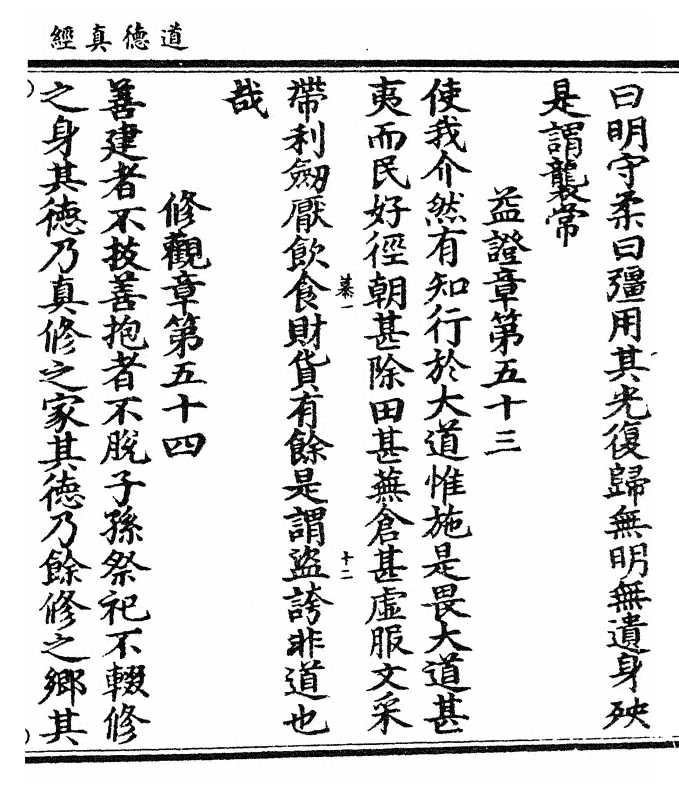 道德真經
曰明守柔曰彊用其光復歸無明無遺身殃
是謂襲常
益證章第五十三
使我介然有知行於大道惟施是畏大道甚
夷而民好徑朝甚除田甚蕪倉甚虛服文采
慕一 十二
帶利劒厭飲食財貨有餘是謂盜誇非道也
哉
修觀章第五十四
善建者不拔善抱者不脫子孫祭祀不輟修
之身其德乃真修之家其德乃餘修之鄉其